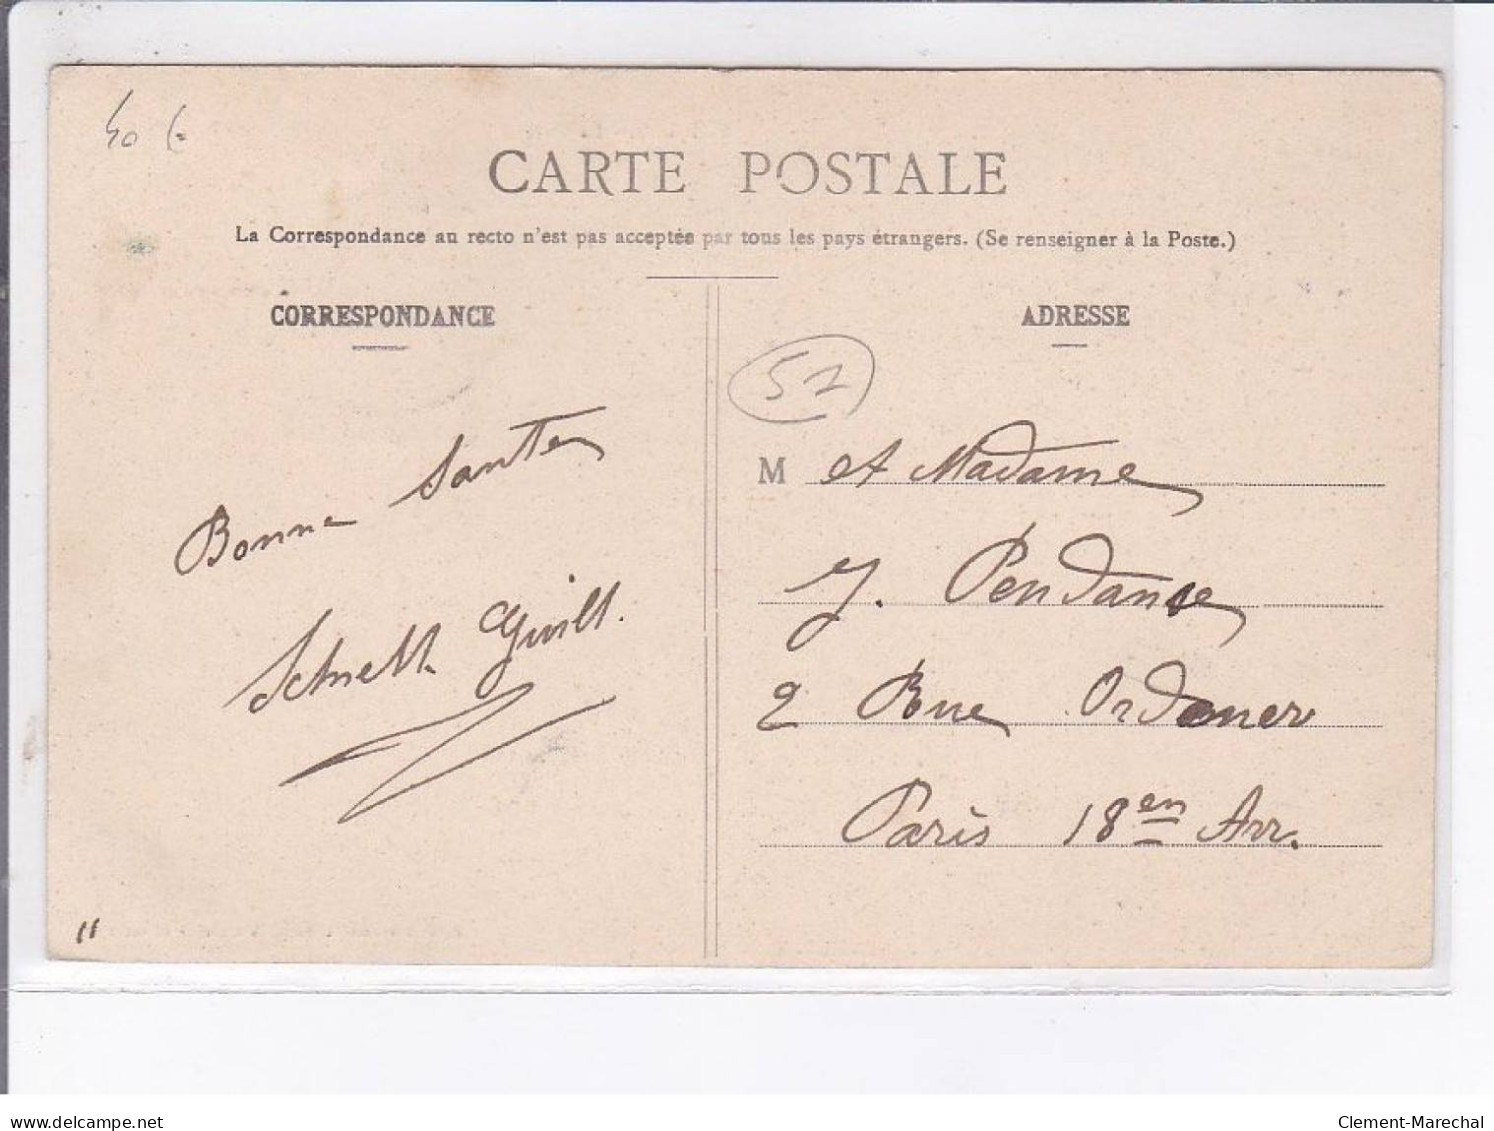 40 €
CARTE POSTALE
La Correspondance au recto n'est pas acceptée par tous les pays étrangers. (Se renseigner à la Poste.)
CORRESPONDANCE
Bonne Sante
Schnell Guill.
11
ADRESSE
57
M et Madame
J. Pendanse
2 Rue Ordener
Paris 18en Arr.
delcampe.net
Clement-Marechal